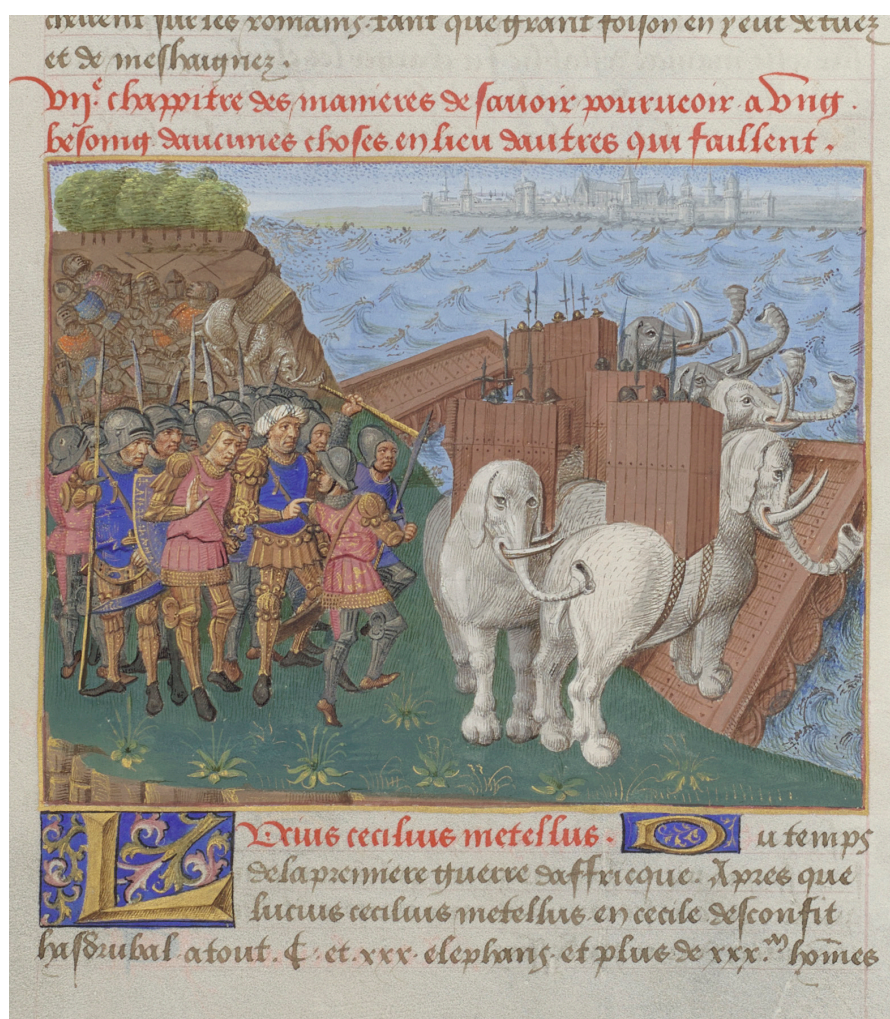 sur les romains. tant que grant foison en y eut de tuez
et de meshaignez.
vij.e chappitre des manieres de sauoir pourueoir a vng
besoing daucunes choses en lieu dautres qui faillent.
Lucius cecilius metellus. Du temps
de la premiere guerre daffricque. Apres que
lucius cecilius metellus en cecile desconfit
hasdrubal atout. C. et. xxx. elephans et plus de xxx.m hom̄es